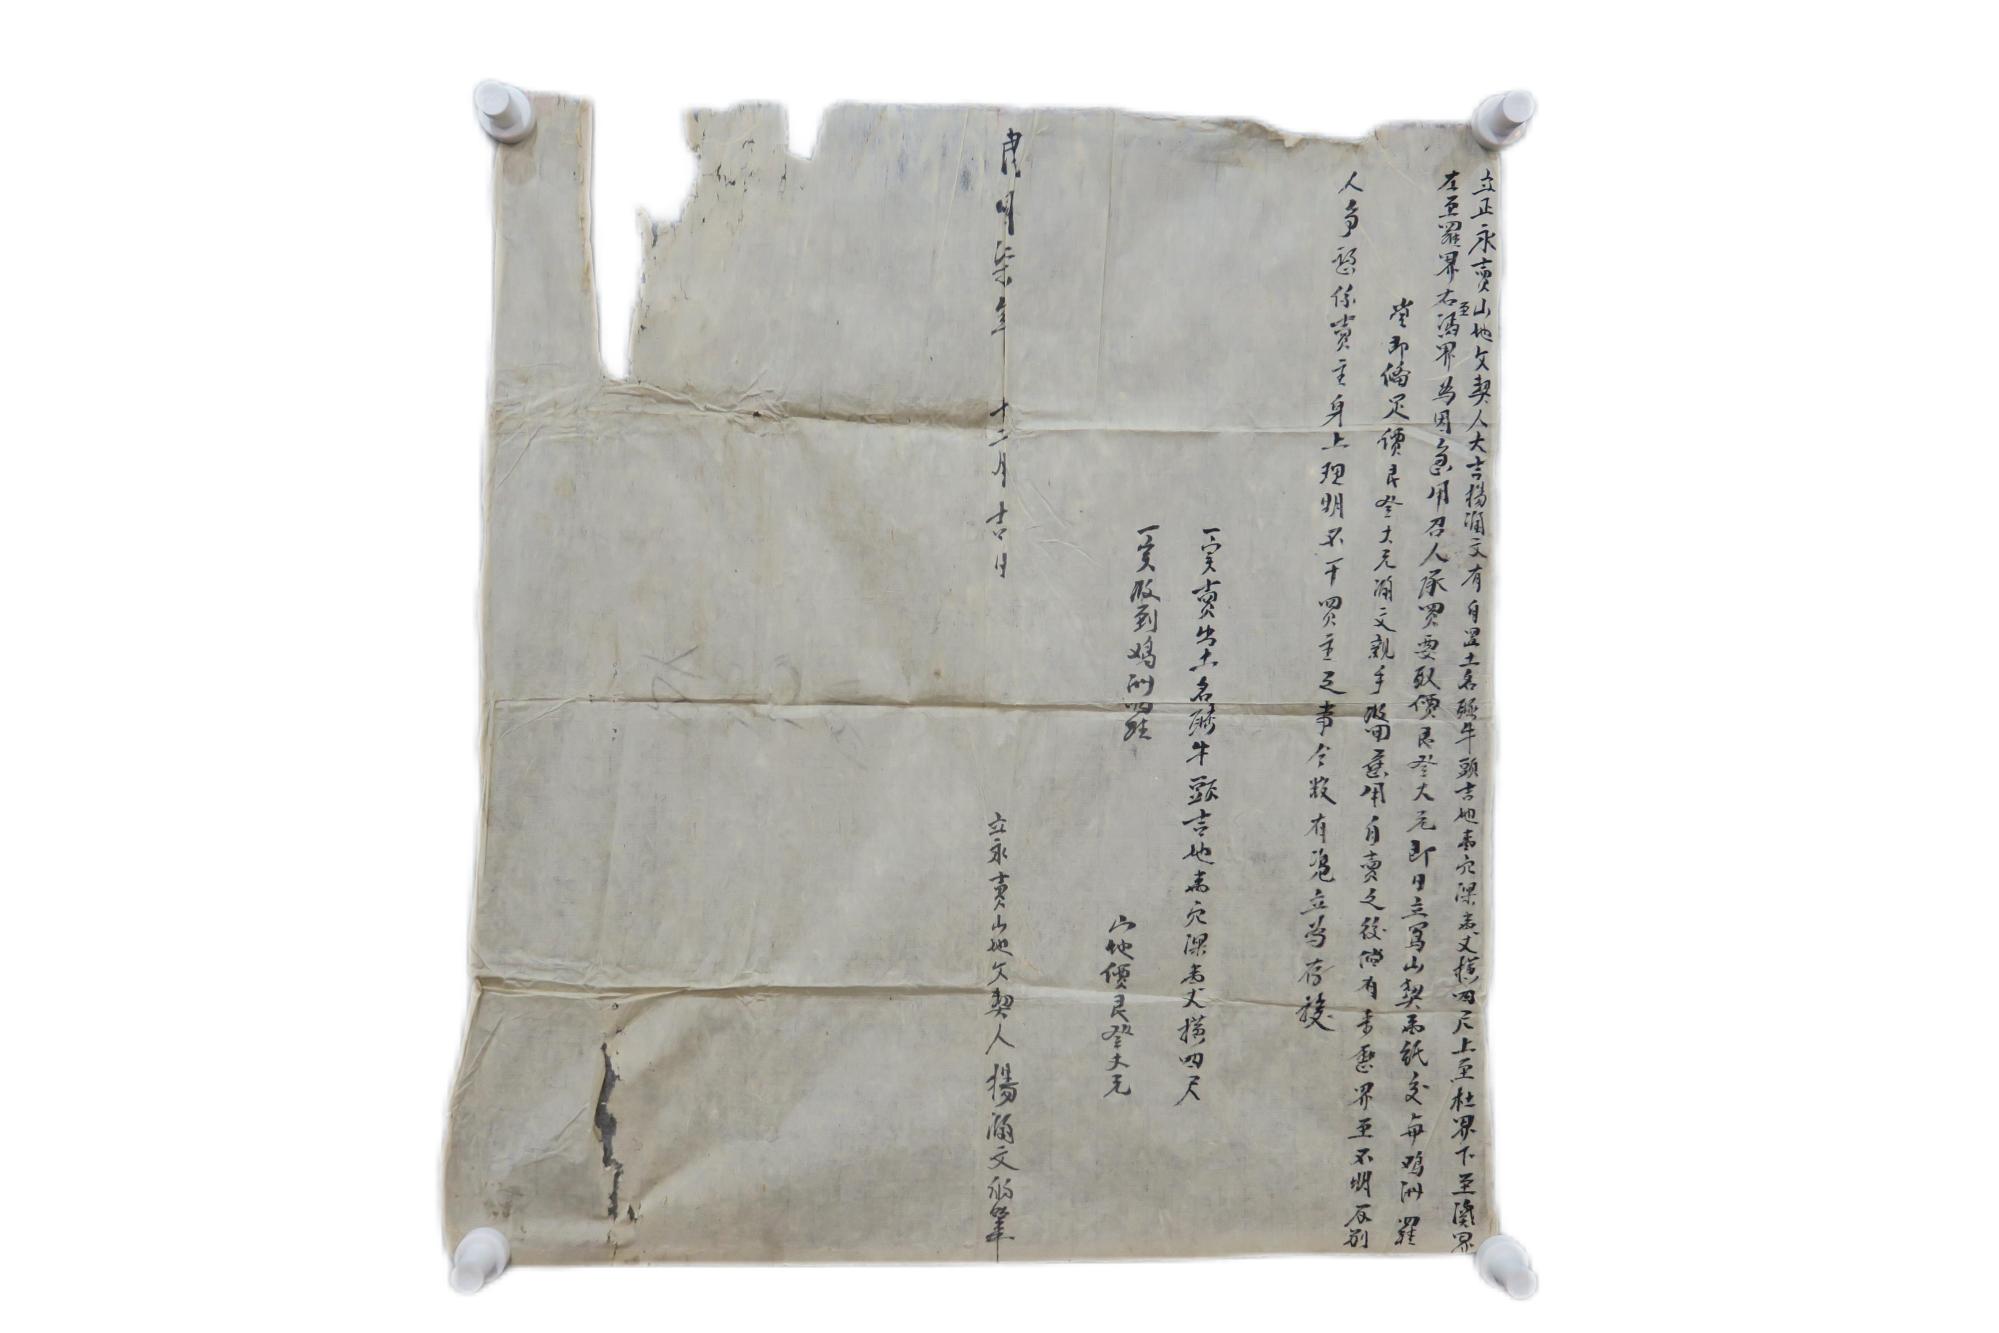 立正永賣山地文契人大吉楊瀰文有自置土名豬牛頭吉地壹穴深壹丈橫四尺上至杜界下至黃界
左至羅界右至馮界為因急用召人承買要取價艮叁大元即日立寫山契壹紙交與鴻洲羅
堂即俻足價艮叁大元瀰文親手收回應用自賣之後倘有來歷界至不明反别
人爭論係賣主身上理明不干買主之事今欲有凴立為存據
一實賣出土名豬牛頭吉地壹穴深壹丈橫四尺
一實收到鴻洲羅 山地價艮叁大元
民国柒年 十二月吉日 立永賣山地文契人楊瀰文的筆